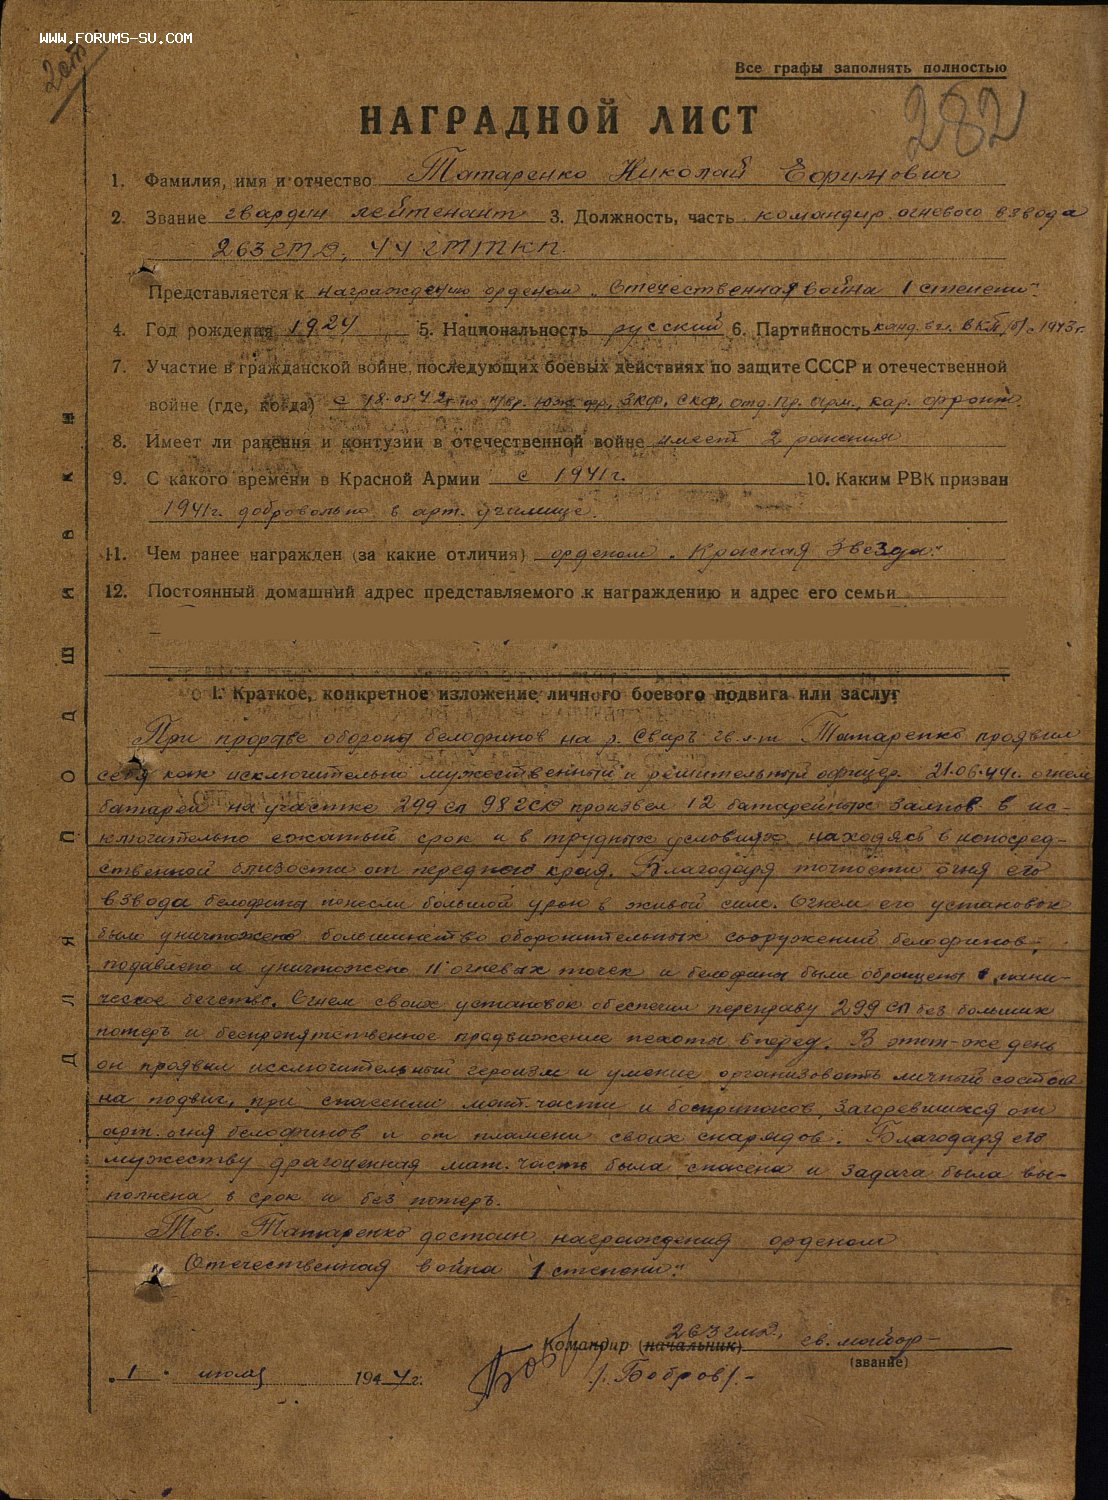 WWW.FORUMS-SU.COM
2 ст
Все графы заполнять полностью
282
НАГРАДНОЙ ЛИСТ
1. Фамилия, имя и отчество Татаренко Николай Ефимович
2. Звание гвардии лейтенант 3. Должность, часть командир огневого взвода
263 гмд, 44 гмп ТКП
Представляется к награждению орденом „Отечественная война 1 степени"
4. Год рождения 1924 5. Национальность русский 6. Партийность канд. вч. ВКП(б) с 1943г.
7. Участие в гражданской войне, последующих боевых действиях по защите СССР и отечественной
войне (где, когда) с 18.05.42г по Юж фр, ЗКФ, СКФ, отд. Пр. арм., кар. фронт.
8. Имеет ли ранения и контузии в отечественной войне имеет 2 ранения
9. С какого времени в Красной Армии с 1941г. 10. Каким РВК призван
1941г. добровольно в арт. училище.
11. Чем ранее награжден (за какие отличия) орденом „Красная Звезда"
12. Постоянный домашний адрес представляемого к награждению и адрес его семьи
I. Краткое, конкретное изложение личного боевого подвига или заслуг
При прорыве обороны белофинов на р. Свирь гв. л-т Татаренко проявил
себя как исключительно мужественный и решительный офицер. 21.06.44г. огнем
батареи на участке 299 сп 98 гсд произвел 12 батарейных залпов в ис-
ключительно сжатый срок и в трудных условиях находясь в непосред-
ственной близости от переднего края. Благодаря точности огня его
взвода белофины понесли большой урон в живой силе. Огнем его установок
было уничтожено большинство оборонительных сооружений белофинов,
подавлено и уничтожено 11 огневых точек и белофины были обращены в пани-
ческое бегство. Огнем своих установок обеспечил переправу 299 сп без больших
потерь и беспрепятственное продвижение пехоты вперед. В этот-же день
он проявил исключительный героизм и умение организовать личный состав
на подвиг, при спасении мат. части и боеприпасов, загоревшихся от
арт. огня белофинов и от пламени своих снарядов. Благодаря его
мужеству драгоценная мат. часть была спасена и задача была вы-
полнена в срок и без потерь.
Тов. Татаренко достоин награждения орденом
„Отечественная война 1 степени."
Командир (начальник) 263 гмд, гв. майор
(звание)
/Бобров/
„1" июля 1944 г.
ДЛЯ ПОДШИВКИ